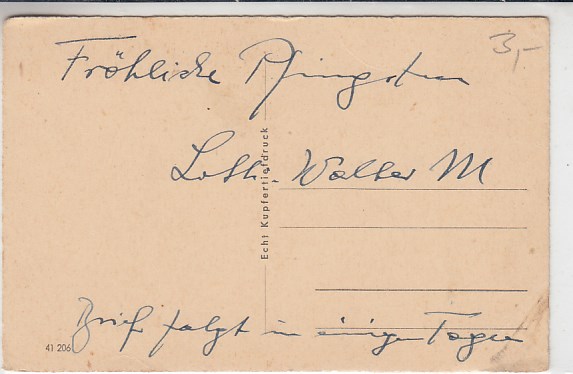 3,-
Fröhliche Pfingsten
Loth. Walter M
Echt Kupfertiefdruck
Brief folgt in einigen Tagen
41 206